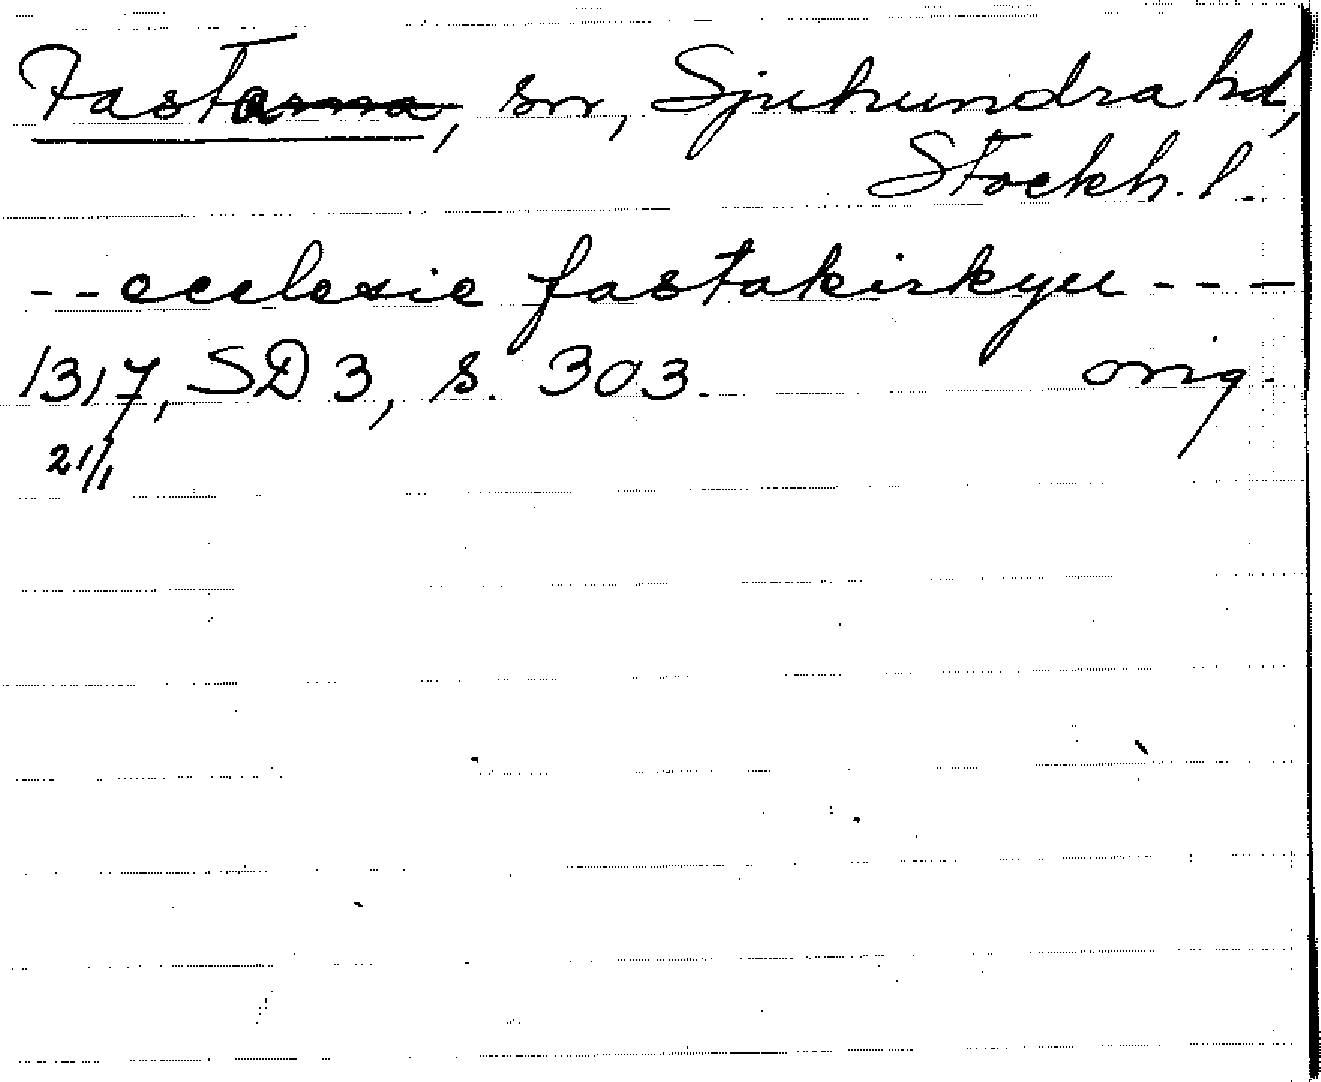 Fasta, sn, Sjuhundra hd,
Stockh. l.
-- ecclesie fastakirkyu ---
1317, SD 3, s. 303. orig.
21/1